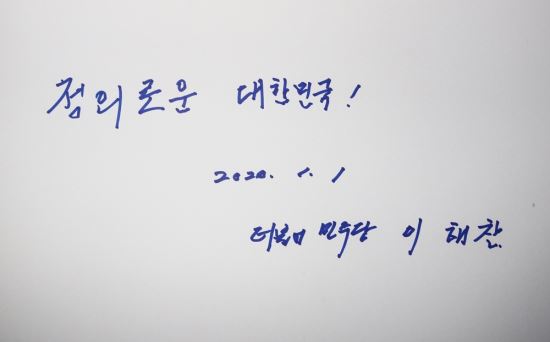 정의로운 대한민국!
2020. 1. 1
더불어 민주당 이해찬